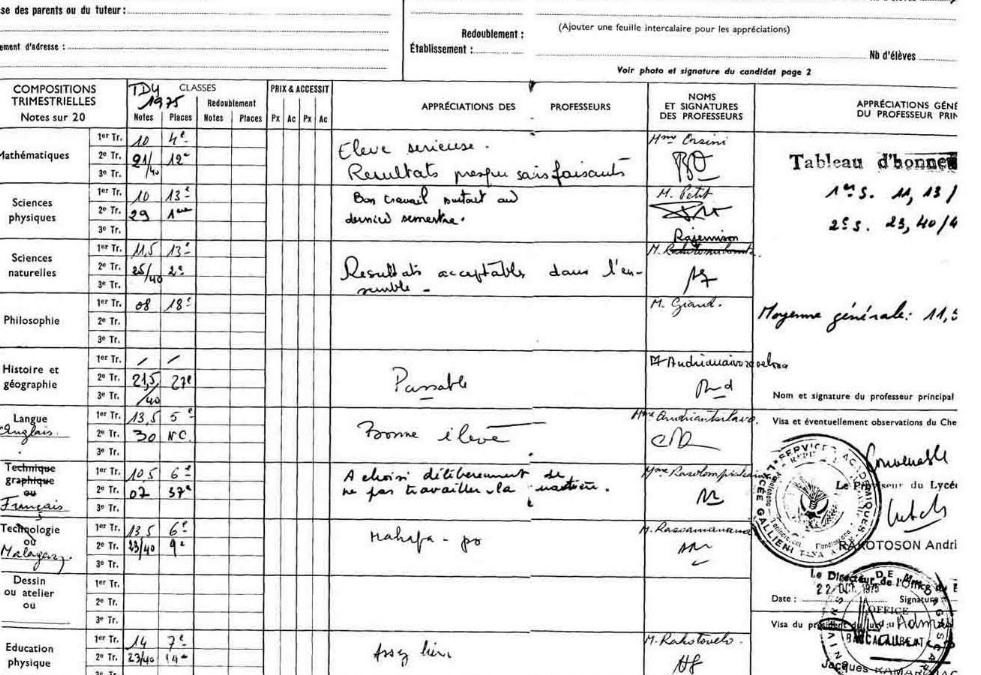 se des parents ou du tuteur:
ement d'adresse :
Redoublement :
(Ajouter une feuille intercalaire pour les appréciations)
Établissement :
Nb d'élèves
Voir photo et signature du candidat page 2
COMPOSITIONS TRIMESTRIELLES Notes sur 20
TDY 1975
CLASSES
Notes Places
Redoublement
Notes Places
PRIX & ACCESSIT
Px Ac Px Ac
APPRÉCIATIONS DES PROFESSEURS
NOMS ET SIGNATURES DES PROFESSEURS
APPRÉCIATIONS GÉNÉ
DU PROFESSEUR PRIN
Mathématiques
1er Tr. 10 4e
2e Tr. 21/40 12e
3e Tr.
Eleve serieuse.
Resultats presque satisfaisants
Mme Orsini
Tableau d'honneu
Sciences physiques
1er Tr. 10 13e
2e Tr. 29
3e Tr.
Bon travail surtout au
dernier semestre.
M. Petit
1er S. 11, 13 /
2e S. 23, 40/4
Sciences naturelles
1er Tr. 11,5 13e
2e Tr. 25/40 2e
3e Tr.
Resultats acceptables dans l'en-
semble -
Rajemison
Philosophie
1er Tr. 08 18e
2e Tr.
3e Tr.
M. Giaud.
Moyenne générale: 11,5
Histoire et géographie
1er Tr. / /
2e Tr. 21,5/40 27e
3e Tr.
Passable
Nom et signature du professeur principal
Langue
Anglais.
1er Tr. 13,5 5e
2e Tr. 30 NC.
3e Tr.
Bonne élève
Visa et éventuellement observations du Che
Convenable
Technique graphique ou
Français
1er Tr. 10,5 6e
2e Tr. 02 37e
3e Tr.
A choisi délibérément de
ne pas travailler la matière.
Le Proviseur du Lycé
SERVICE ACADÉMIQUES
LYCÉE GALLIENI
RAKOTOSON Andri
Technologie ou
Malagasy.
1er Tr. 13,5 6e
2e Tr. 23/40 9e
3e Tr.
Mahafa-po
M. Rassamanana
Dessin ou atelier ou
1er Tr.
2e Tr.
3e Tr.
Le Directeur de l'Office du B
22 OCT. 1975
Date :
Signature
OFFICE
BACCALAUREAT
Visa du président du jury : Admis
Education physique
1er Tr. 14 7e
2e Tr. 23/40 14e
Assez bien
M. Rakotovelo.
Jacques